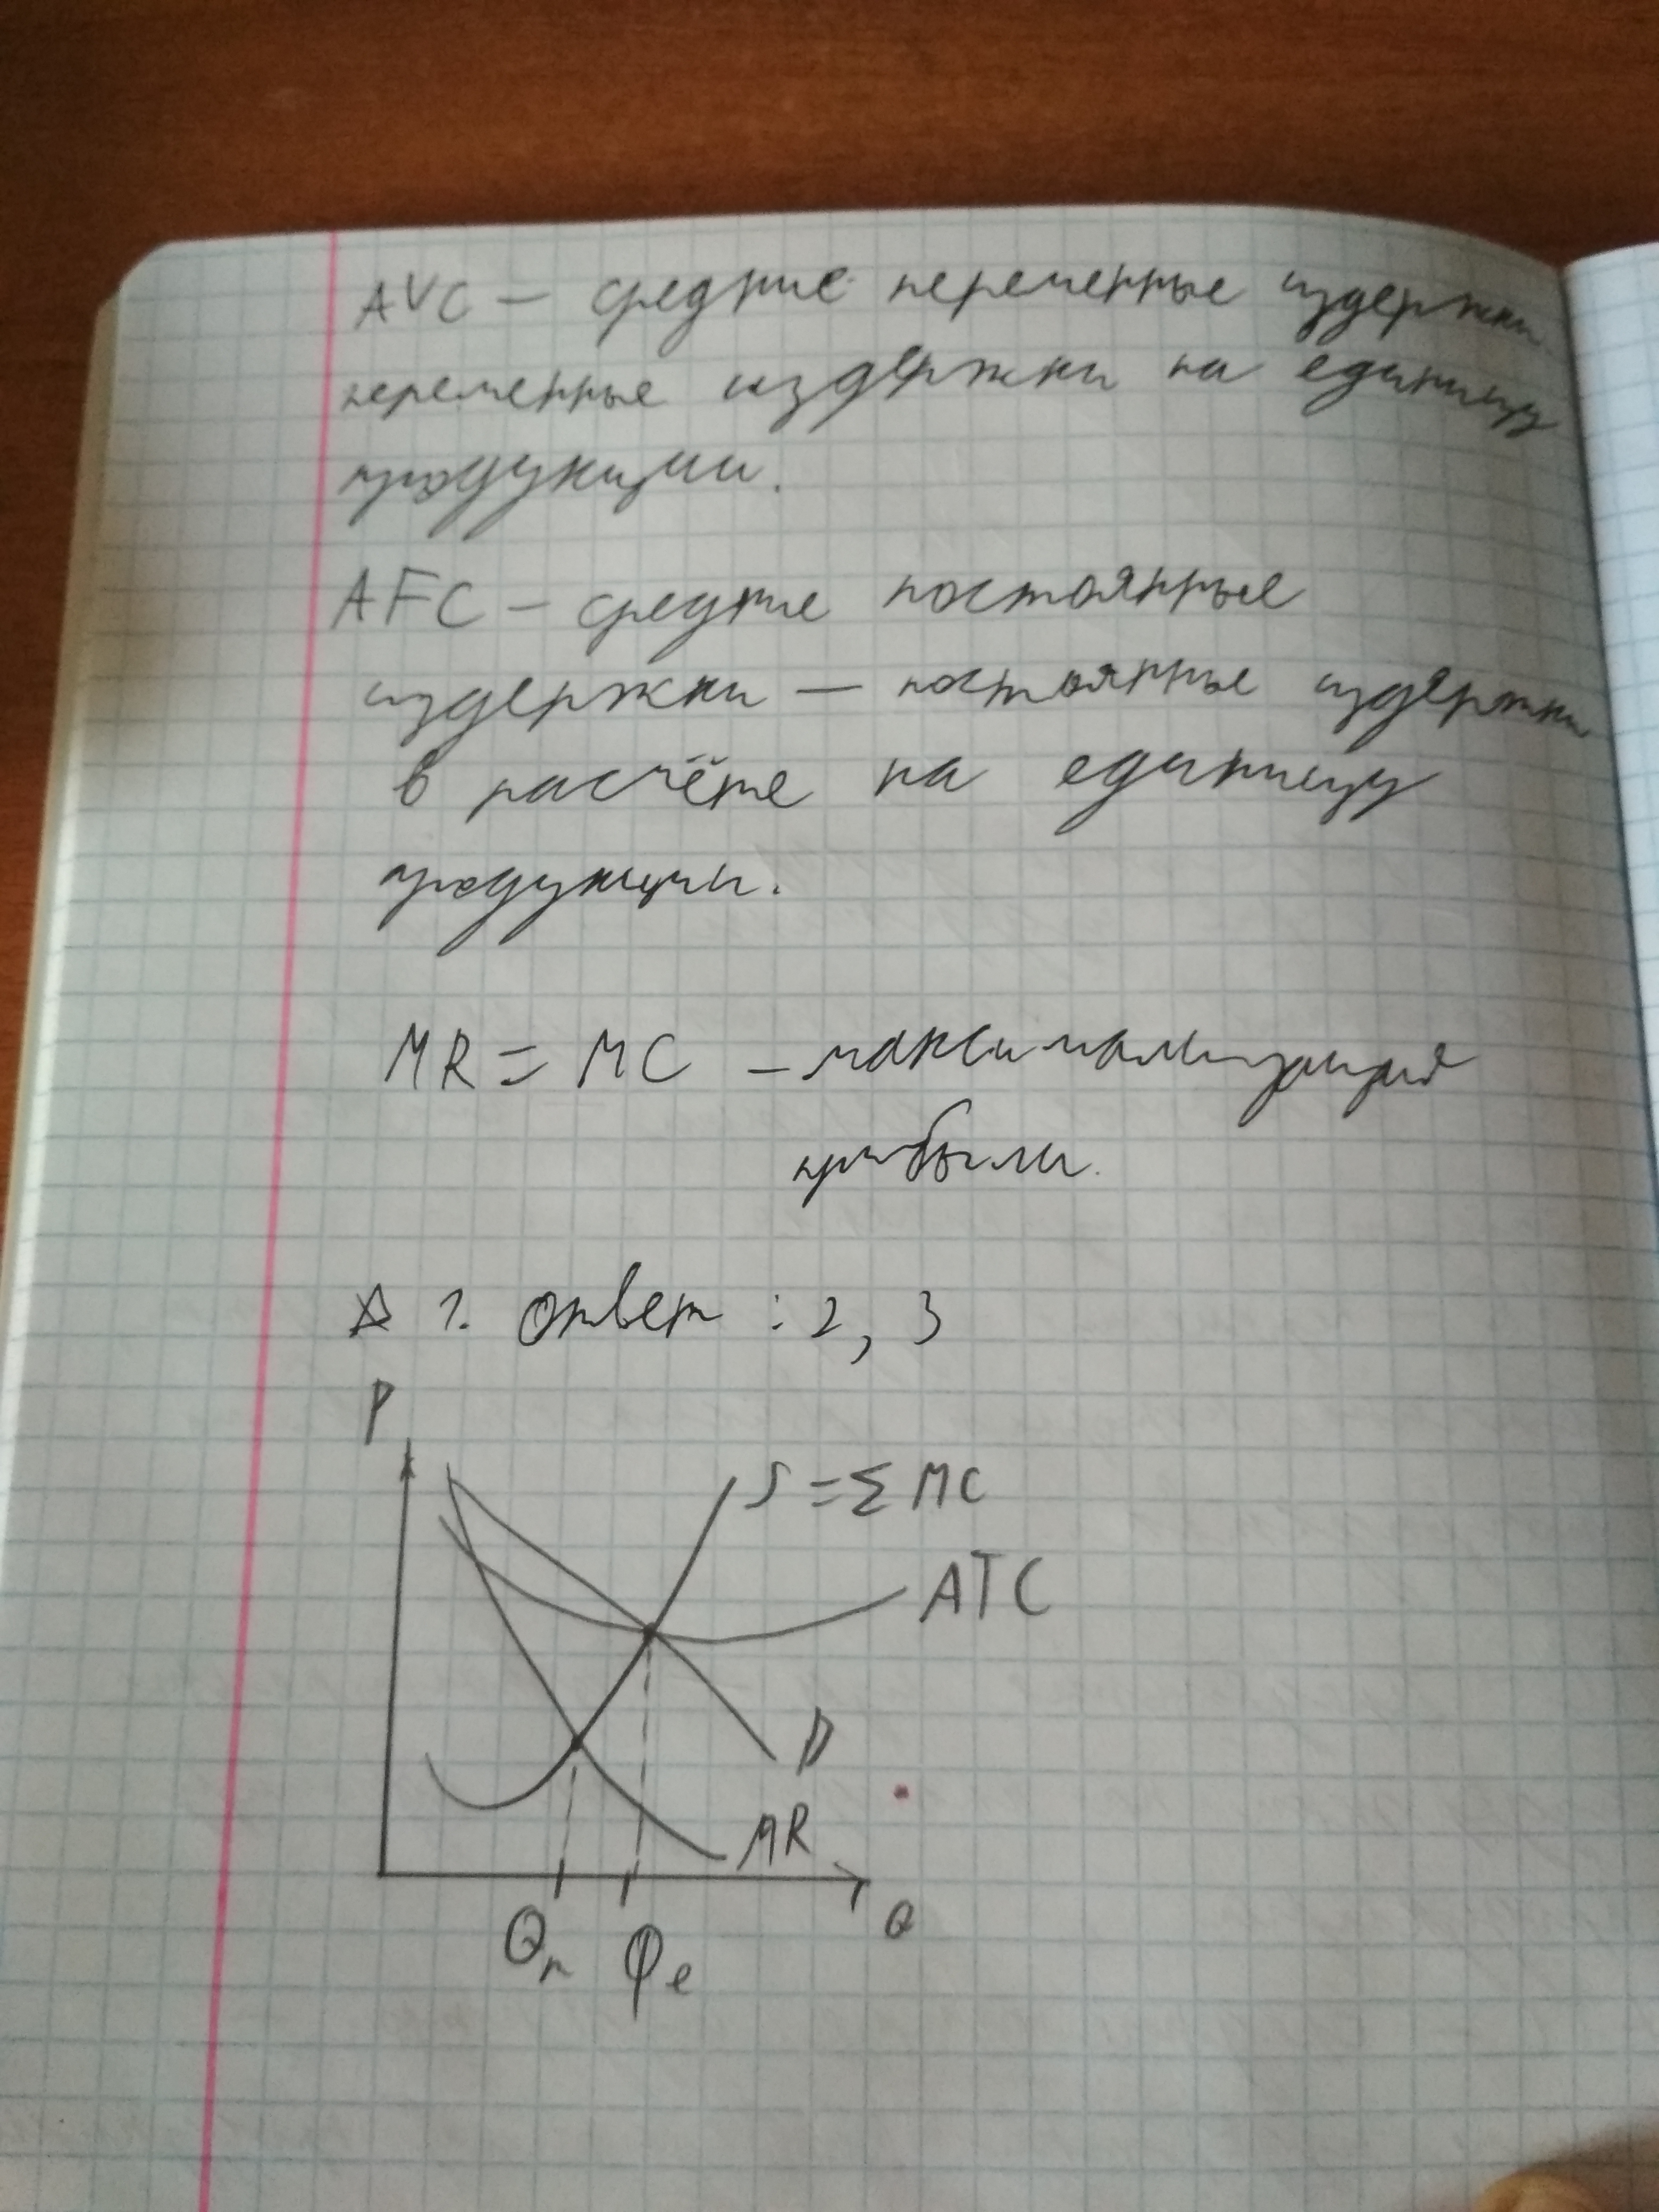 AVC – средние переменные издержки
переменные издержки на единицу
продукции.
AFC – средние постоянные
издержки — постоянные издержки
в расчёте на единицу
продукции.
MR = MC – максимализация
прибыли.
1. Ответ : 2, 3
P
S = Σ MC
ATC
D
MR
Q
Qn Qe